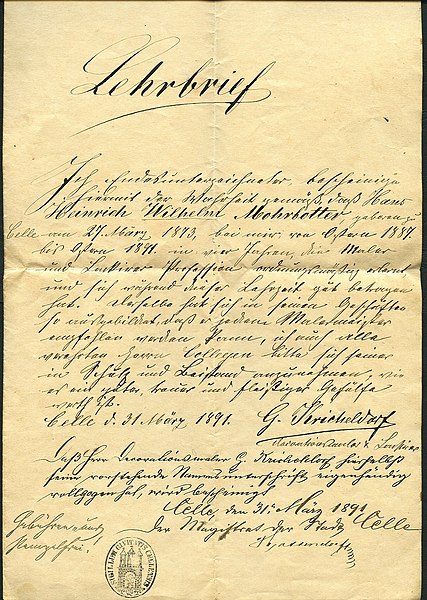 Lehrbrief
Ich Endesunterzeichneter, bescheinige
hiermit der Wahrheit gemäß, daß Hans
Heinrich Wilhelm Mohrbotter geboren zu
Celle am 27. März, 1873, bei mir von Ostern 1887.
bis Ostern 1891. in vier Jahren, die Maler
und Lackirer Profession ordnungsmäßig erlernt
und sich während dieser Lehrzeit gut betragen
hat. Derselbe hat sich in seinen Geschäften
so ausgebildet, daß er jedem Malermeister
empfohlen werden kann, ich auch alle
werthen Herrn Collegen bitte sich seiner
in Schutz und Beistand anzunehmen, wie
er ein guter, treuer und fleißiger Gehülfe
werth ist.
Celle d. 31. März 1891. G. Kricheldorf
Decorationsmaler & Lackirer
Daß Herr Decorationsmaler G. Kricheldorf hieselbst
seine vorstehende Namensunterschrift eigenhändig
vollzogen hat, wird bescheinigt
Celle, den 31. März 1891
Der Magistrat der Stadt Celle
Gebühren- und
stempelfrei!